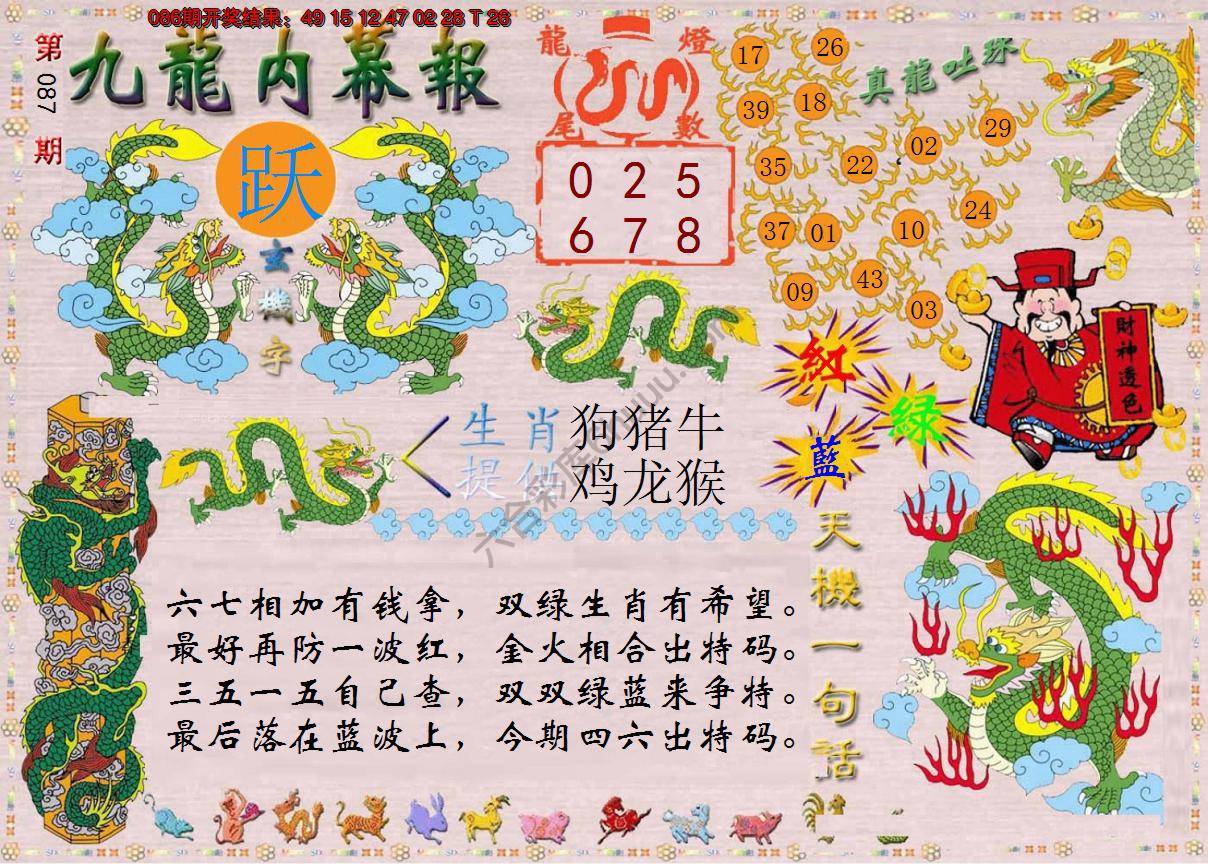 086期开奖结果：49 15 12 47 02 28 T 26
第087期
九龍内幕報
跃
玄機字
龍燈尾數
0 2 5
6 7 8
真龍吐珠
17 26
39 18
35 22 02 29
37 01 10 24
09 43 03
財神透色
紅
綠
藍
生肖提供
狗猪牛
鸡龙猴
天機一句話
六七相加有钱拿，双绿生肖有希望。
最好再防一波红，金火相合出特码。
三五一五自己查，双双绿蓝来争特。
最后落在蓝波上，今期四六出特码。